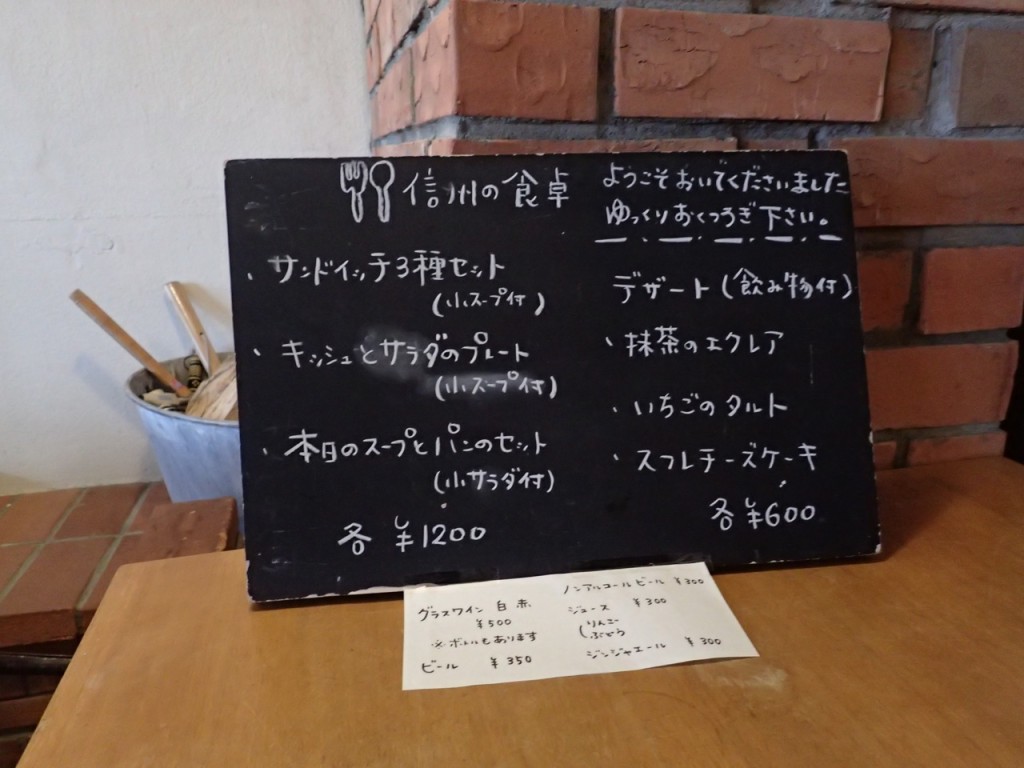 信州の食卓
・サンドイッチ3種セット
(小スープ付)
・キッシュとサラダのプレート
(小スープ付)
・本日のスープとパンのセット
(小サラダ付)
各 ¥1200
ようこそおいでくださいました
ゆっくりおくつろぎ下さい。
デザート(飲み物付)
・抹茶のエクレア
・いちごのタルト
・スフレチーズケーキ
各¥600
グラスワイン 白 赤
¥500
※ボトルもあります
ビール ¥350
ノンアルコールビール ¥300
ジュース ¥300
(りんご
ぶどう
ジンジャエール ¥300